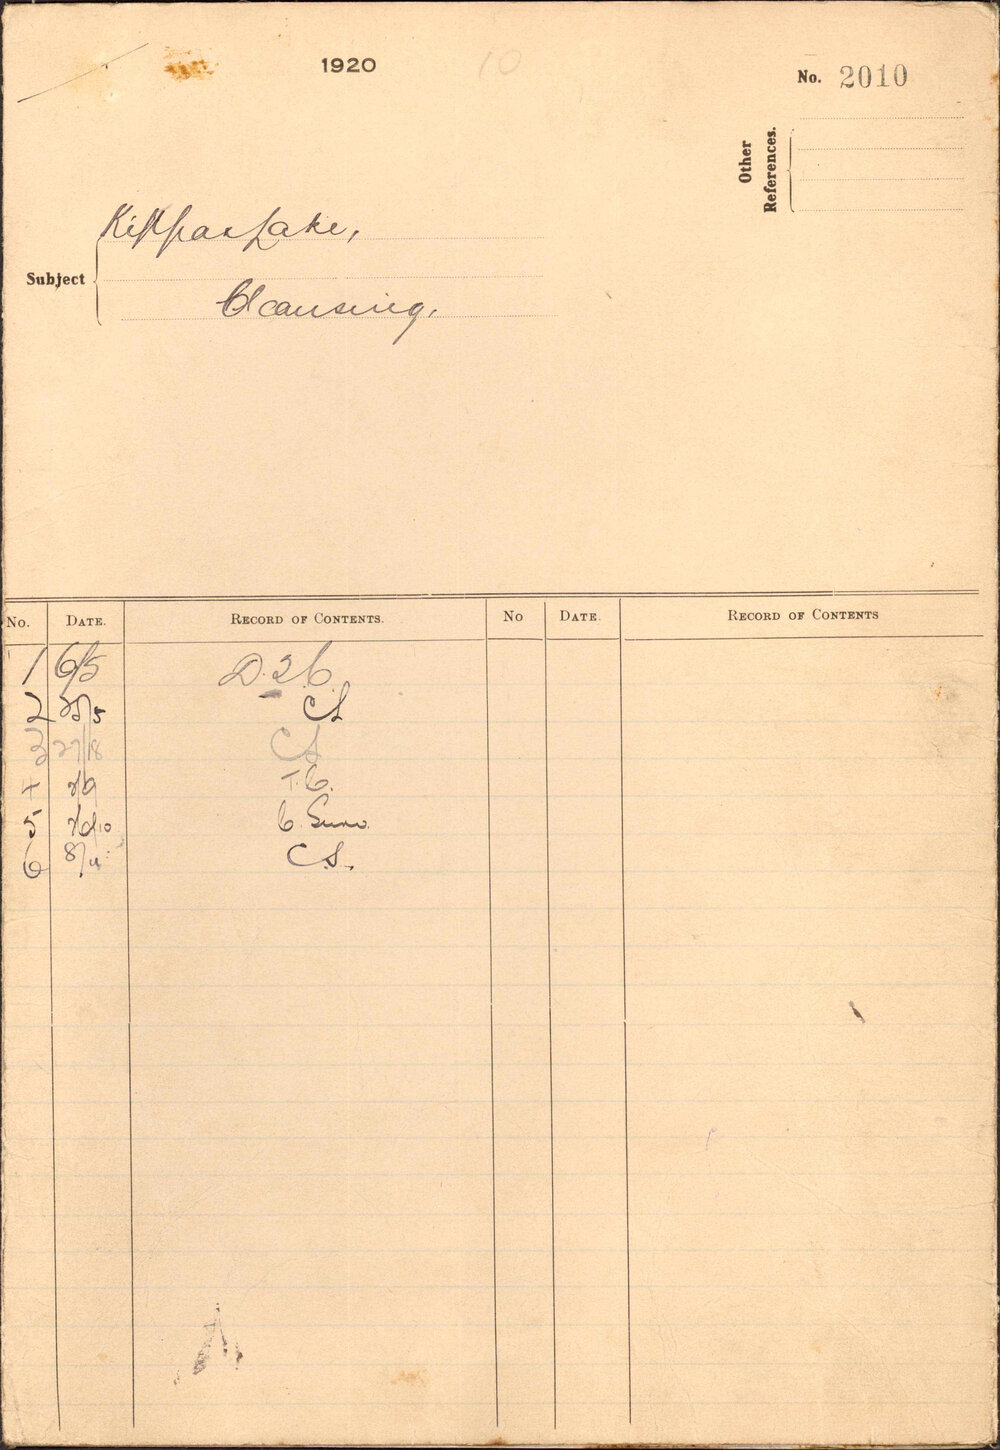 1920 10
No. 2010
Other References.
Kippax Lake,
Subject
Cleansing.
No. DATE. RECORD OF CONTENTS. No DATE. RECORD OF CONTENTS
1 6/5 D.26.
2 25/5 CS
3 27/8 CS
4 2/9 T.C.
5 26/10 C. Surv.
6 8/11 C.S.